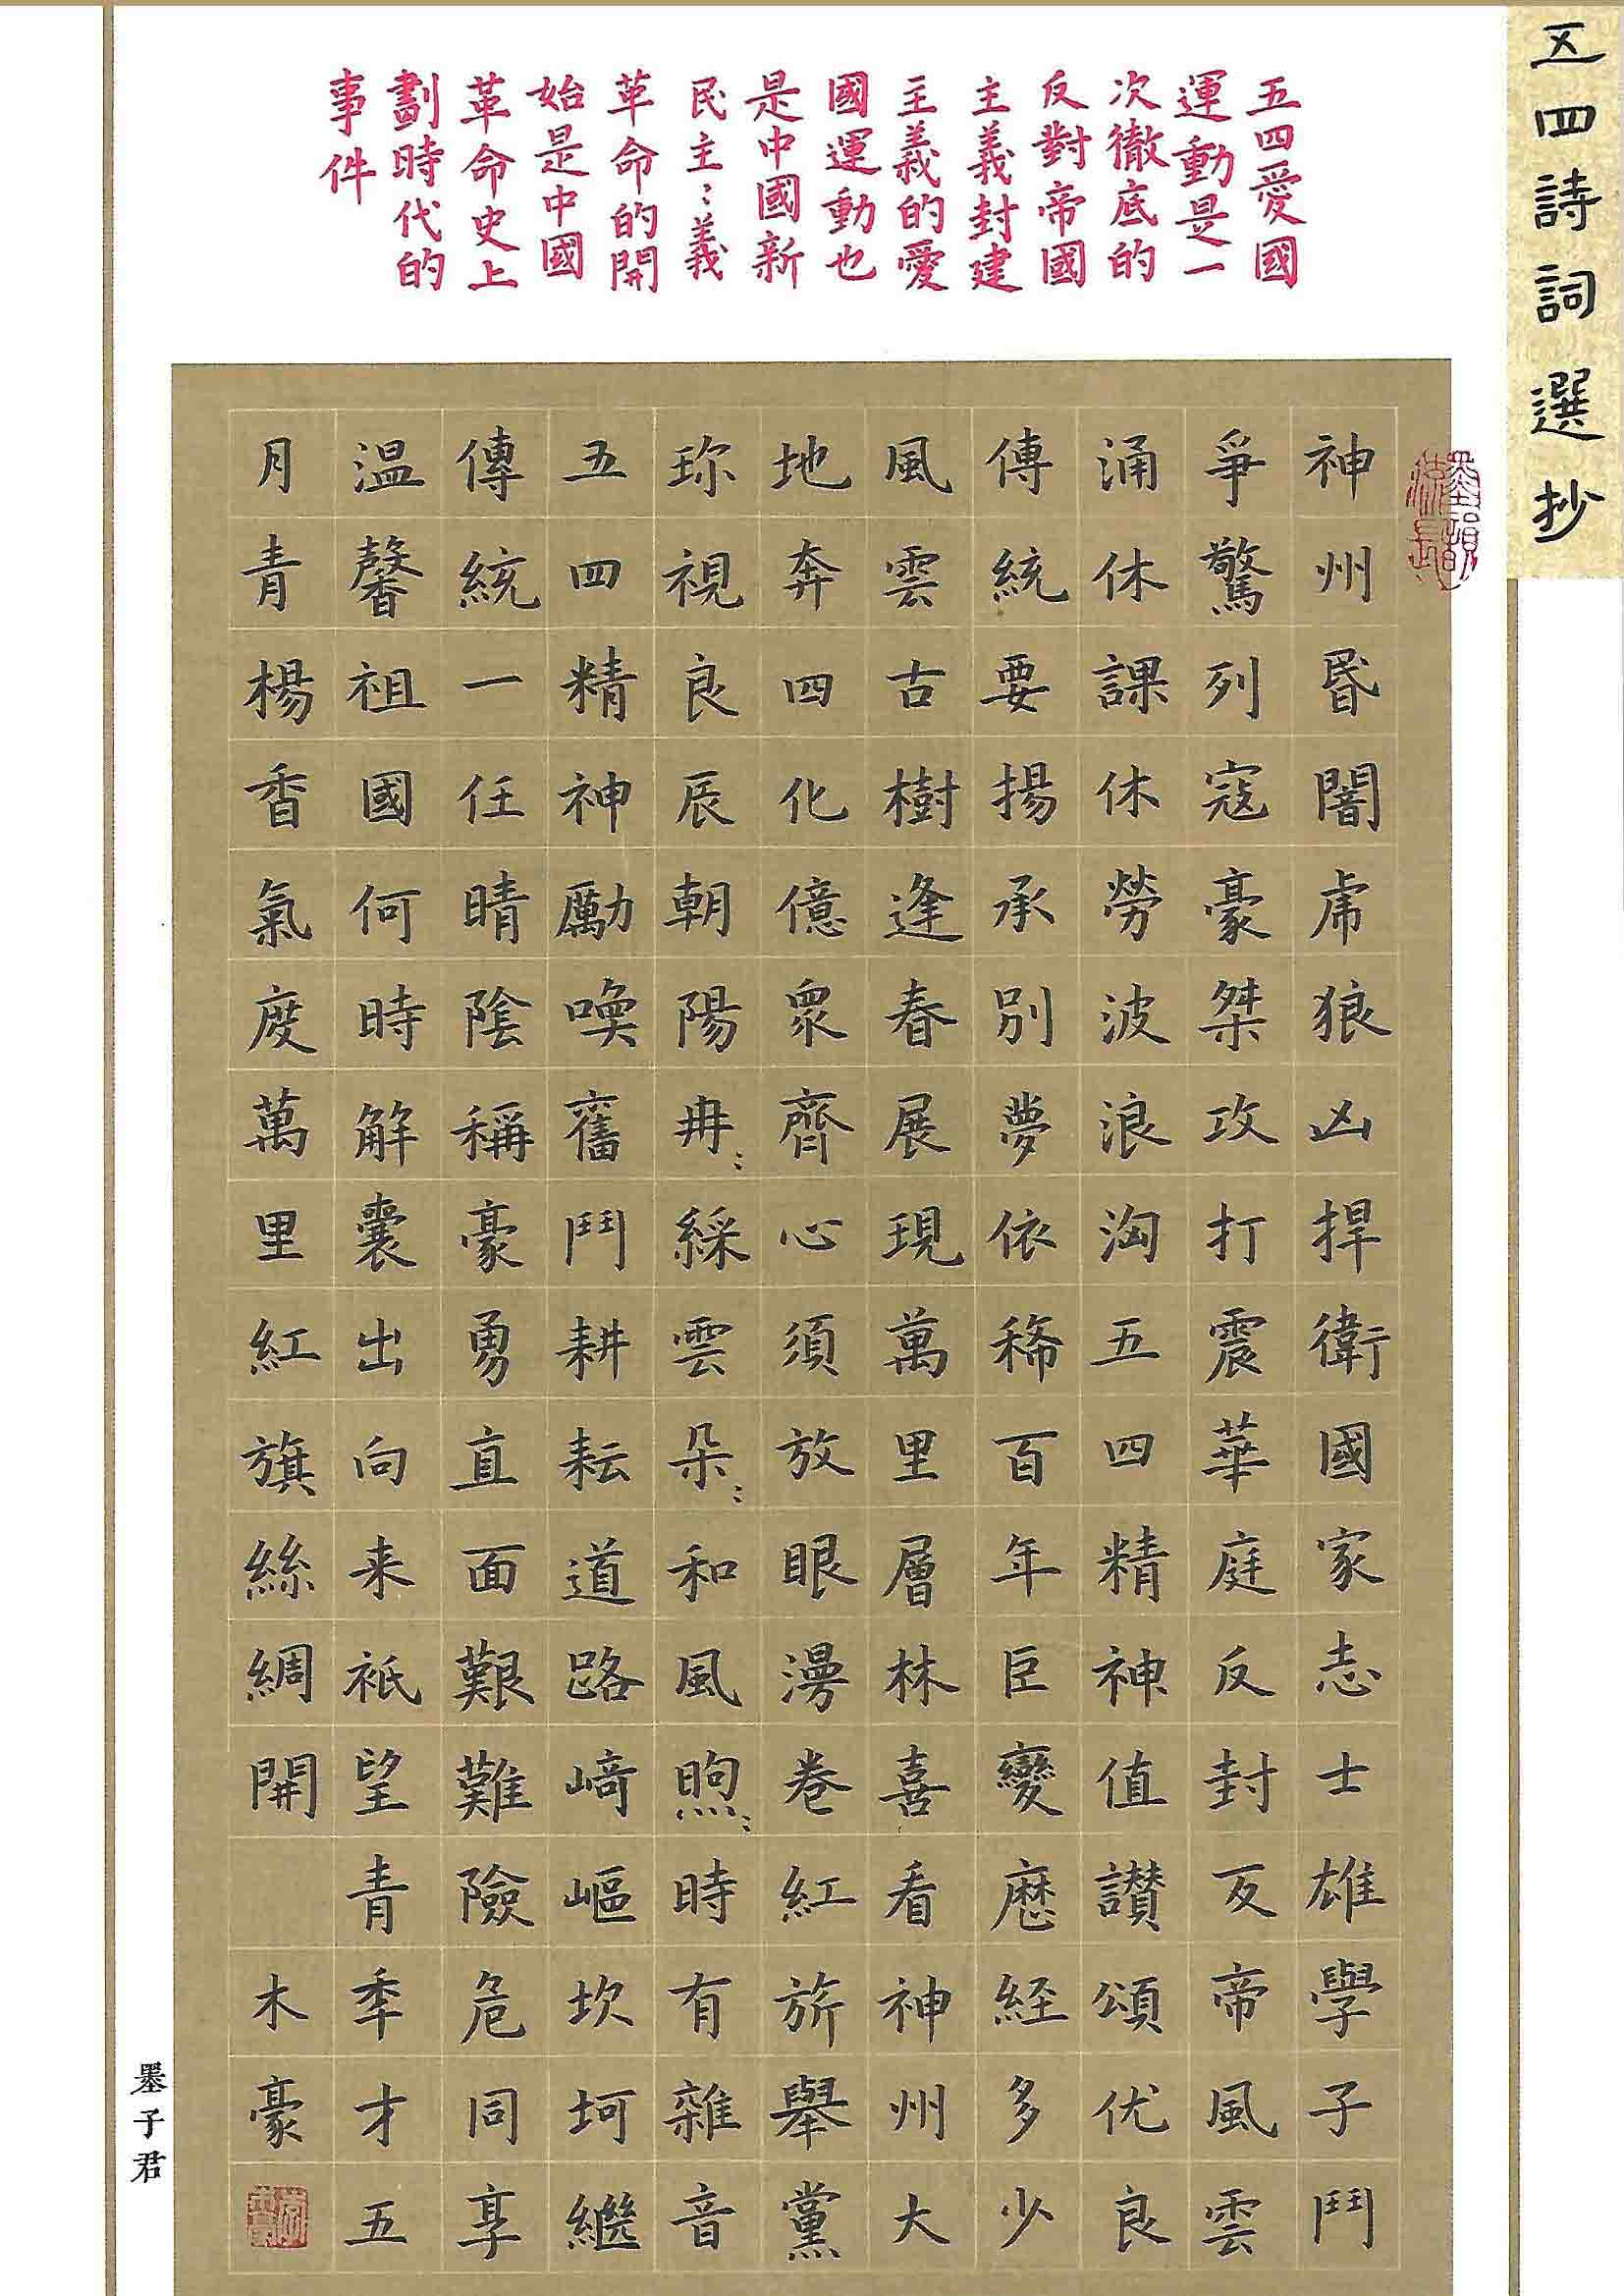 五四詩詞選抄
五四愛國
運動是一
次徹底的
反對帝國
主義封建
主義的愛
國運動也
是中國新
民主：義
革命的開
始是中國
革命史上
劃時代的
事件
神州昏闇虎狼凶捍衛國家志士雄學子鬥
爭驚列寇豪桀攻打震華庭反封反帝風雲
涌休課休勞波浪洶五四精神值讃頌优良
傳統要揚承别夢依稀百年巨變歷経多少
風雲古樹逢春展現萬里層林喜看神州大
地奔四化億衆齊心須放眼漫卷紅旂舉黨
珎視良辰朝陽冉：綵雲朵：和風煦：時有雜音
五四精神勵喚舊鬥耕耘道路崎嶇坎坷繼
傳統一任晴陰稱豪勇直面艱難險危同享
温馨祖國何時解囊出向来祇望青季才五
月青楊香氣度萬里紅旗絲綢開
木豪
墨子君